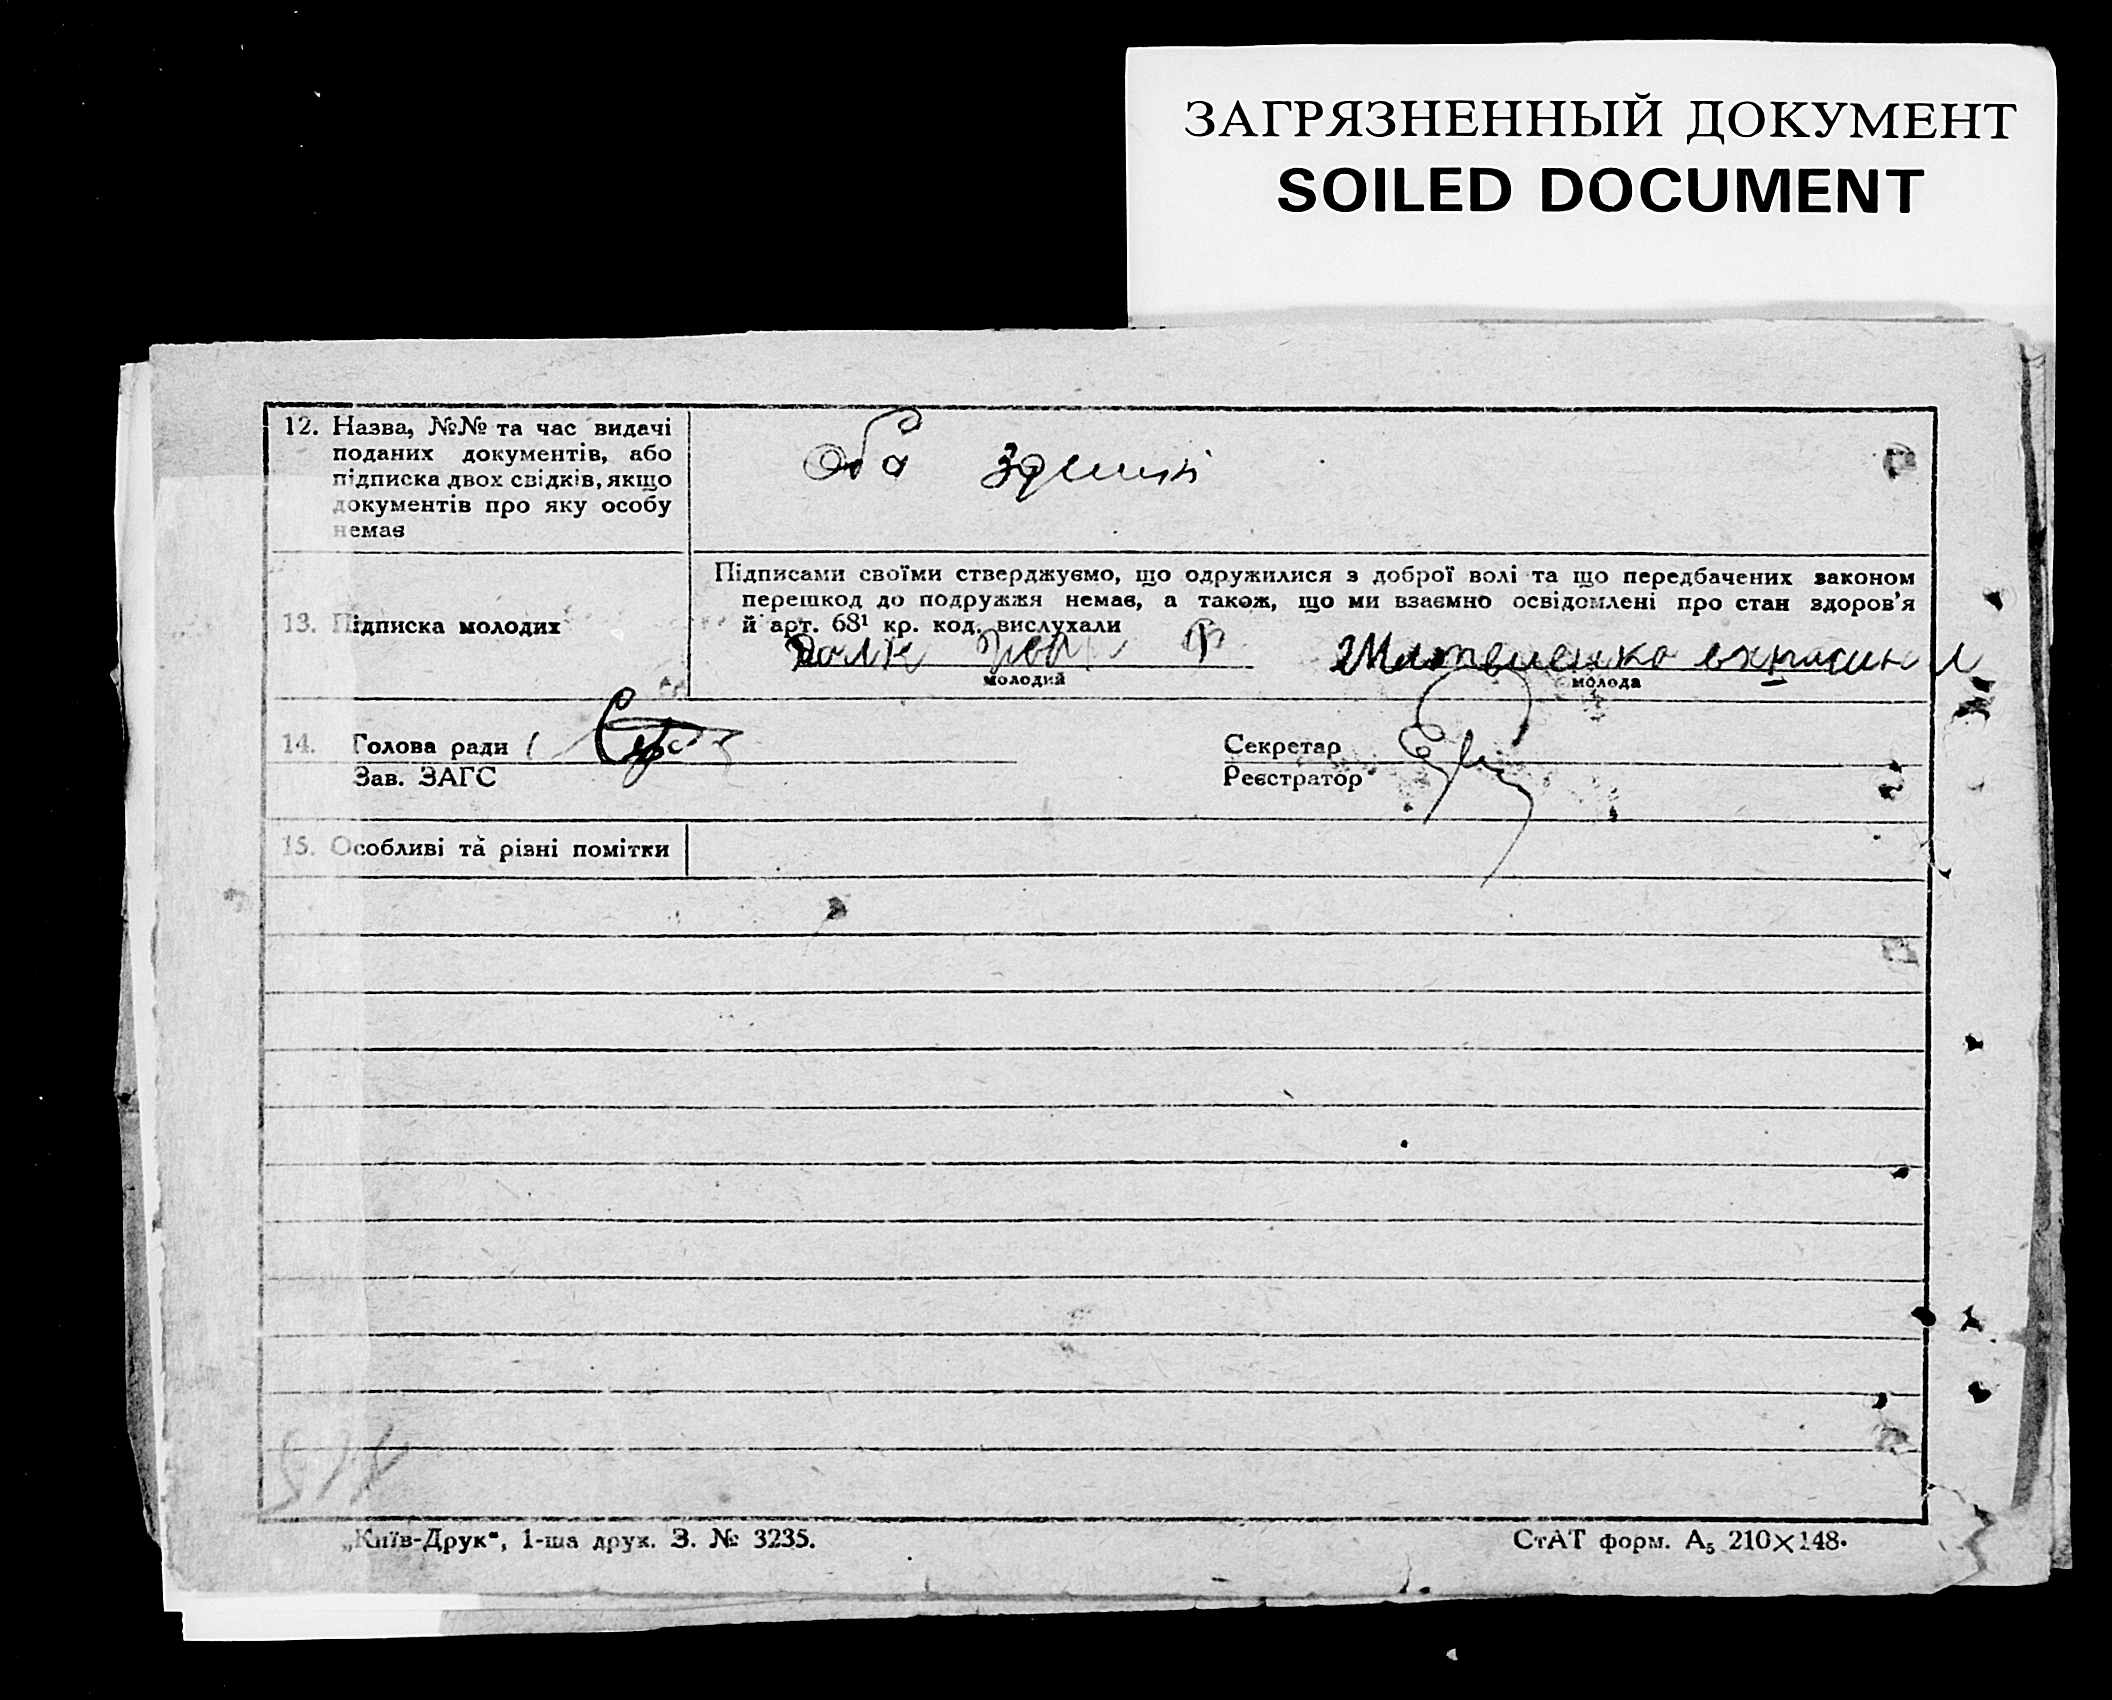 ЗАГРЯЗНЕННЫЙ ДОКУМЕНТ
SOILED DOCUMENT
12. Назва, №№ та час видачі
поданих документів, або
підписка двох свідків, якщо
документів про яку особу
немає
Оба
13. Підписка молодих
Підписами своїми стверджуємо, що одружилися з доброї волі та що передбачених законом
перешкод до подружжя немає, а також, що ми взаємно освідомлені про стан здоров'я
й арт. 68¹ кр. код. вислухали
Иван Матвиенко
молодий молода
14. Голова ради Секретар
Зав. ЗАГС Реєстратор
15. Особливі та різні помітки
„Київ-Друк“, 1-ша друк. З. № 3235. СтАТ форм. А₅ 210×148.